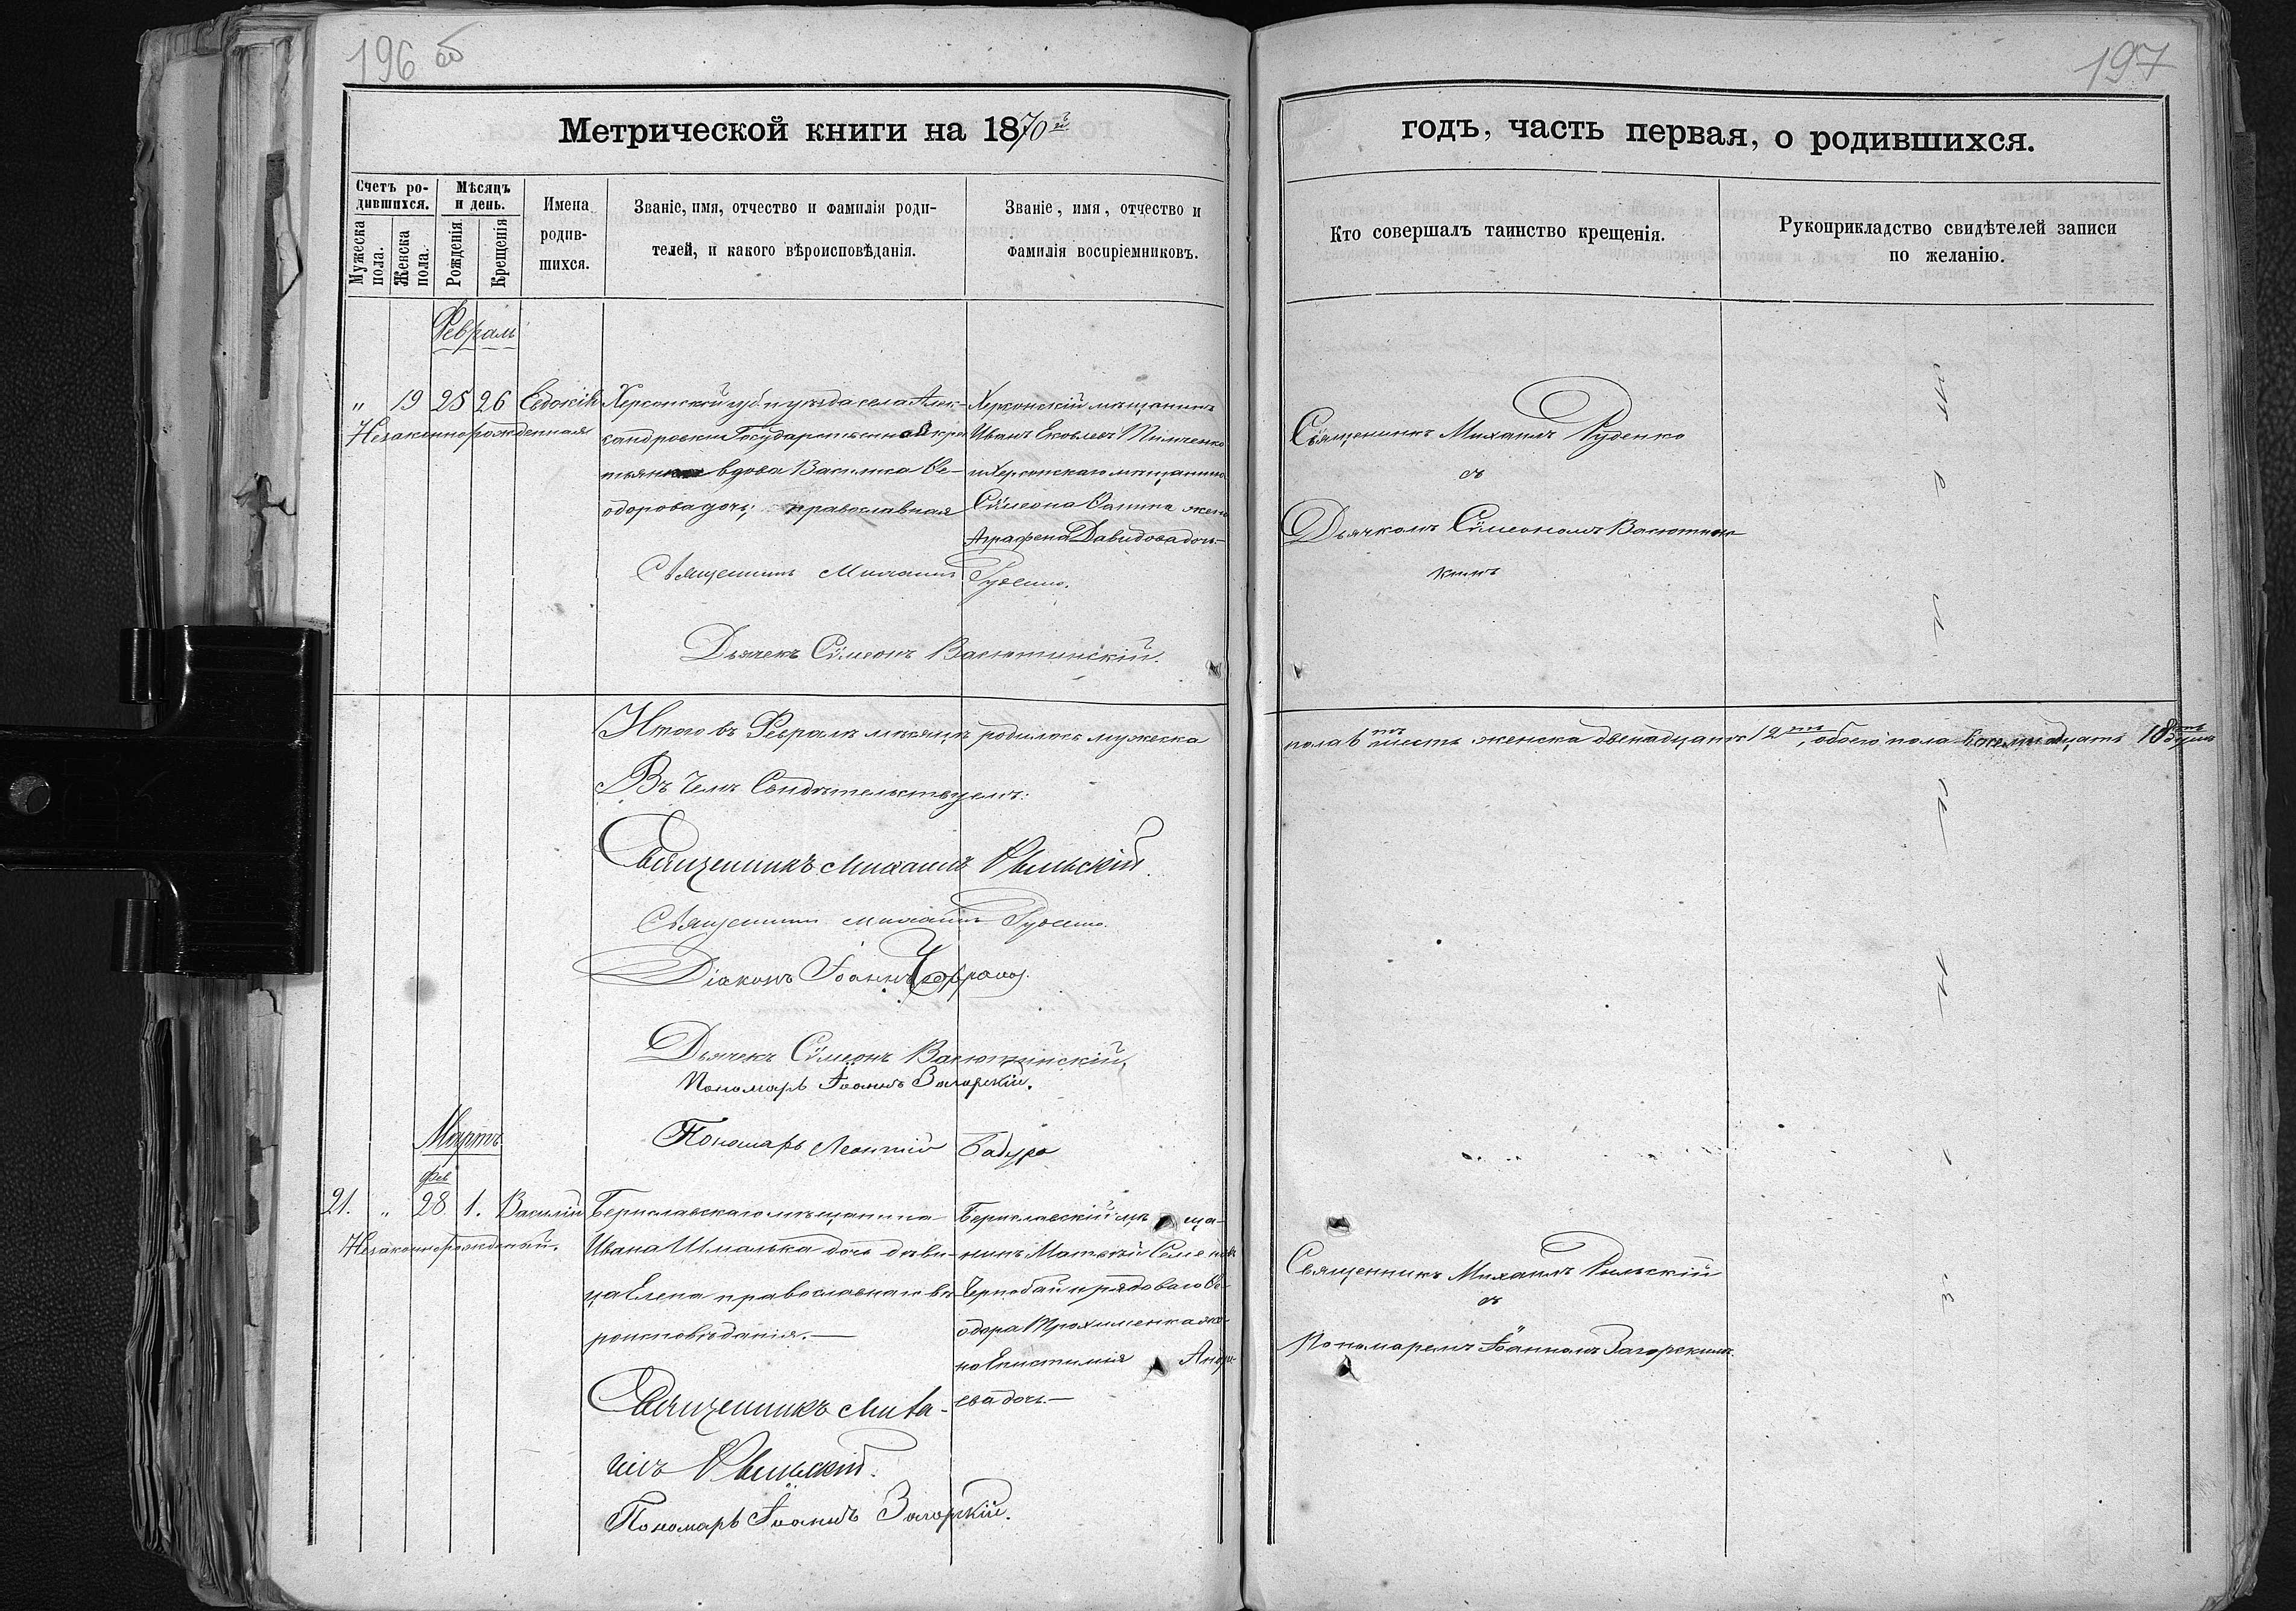 196 об
197
Метрической книги на 1870й
годъ, часть первая, о родившихся.
Счетъ родившихся.
Мужеска пола.
Женска пола.
Мѣсяцъ и день.
Рожденія
Крещенія
Имена родившихся.
Званіе, имя, отчество и фамилія роди-
телей, и какого вѣроисповѣданія.
Званіе, имя, отчество и
фамилія воспріемниковъ.
Кто совершалъ таинство крещенія.
Рукоприкладство свидѣтелей записи
по желанію.
Февраль
" 19 25 26 Евдокія
Незаконнорожденная
Херсонской губ. и уѣзда села Алек-
сандровки Государственная кре
стьянка вдова Василиса Ѳе-
одорова дочь; православная
Херсонскій мѣщанинъ
Иванъ Яковлевъ
и Херсонскаго мѣщанина
Сѵмеона жена
Аграфена Давидова дочь.
Священникъ Михаилъ Руденко
съ
Дьячкомъ Сѵмеономъ Васютин
кимъ
Священникъ Михаилъ Руденко.
Дьячекъ Сѵмеонъ Васютинскій.
Итого въ Февралѣ мѣсяцѣ родилось мужеска
пола 6ть шесть женска двенадцать 12ть, обоего пола восемнадцать 18ть душъ
Въ чемъ Свидѣтельствуемъ:
Священникъ Михаилъ Рыльскій.
Священникъ Михаилъ Руденко.
Діаконъ Іоаннъ
Дьячекъ Сѵмеонъ Васютинскій.
Пономарь Іоаннъ Загорскій.
Пономарь Леонтій Бадура
Мартъ
фев
21. " 28 1. Василій
Незаконнорожденый.
Бериславскаго мѣщанина
Ивана Шмалька дочь дѣви-
ца Елена православнаго вѣ-
роисповѣданія.—
Бериславскій мѣща-
нинъ Матвѣй Семеновъ
Чернобай и рядоваго Ѳе-
одора Трохименка же-
на Епистимія Андре-
ева дочь.—
Священникъ Михаилъ Рыльскій
съ
Пономаремъ Іоанномъ Загорскимъ.
Священникъ Миха-
илъ Рыльскій.
Пономарь Іоаннъ Загорскій.